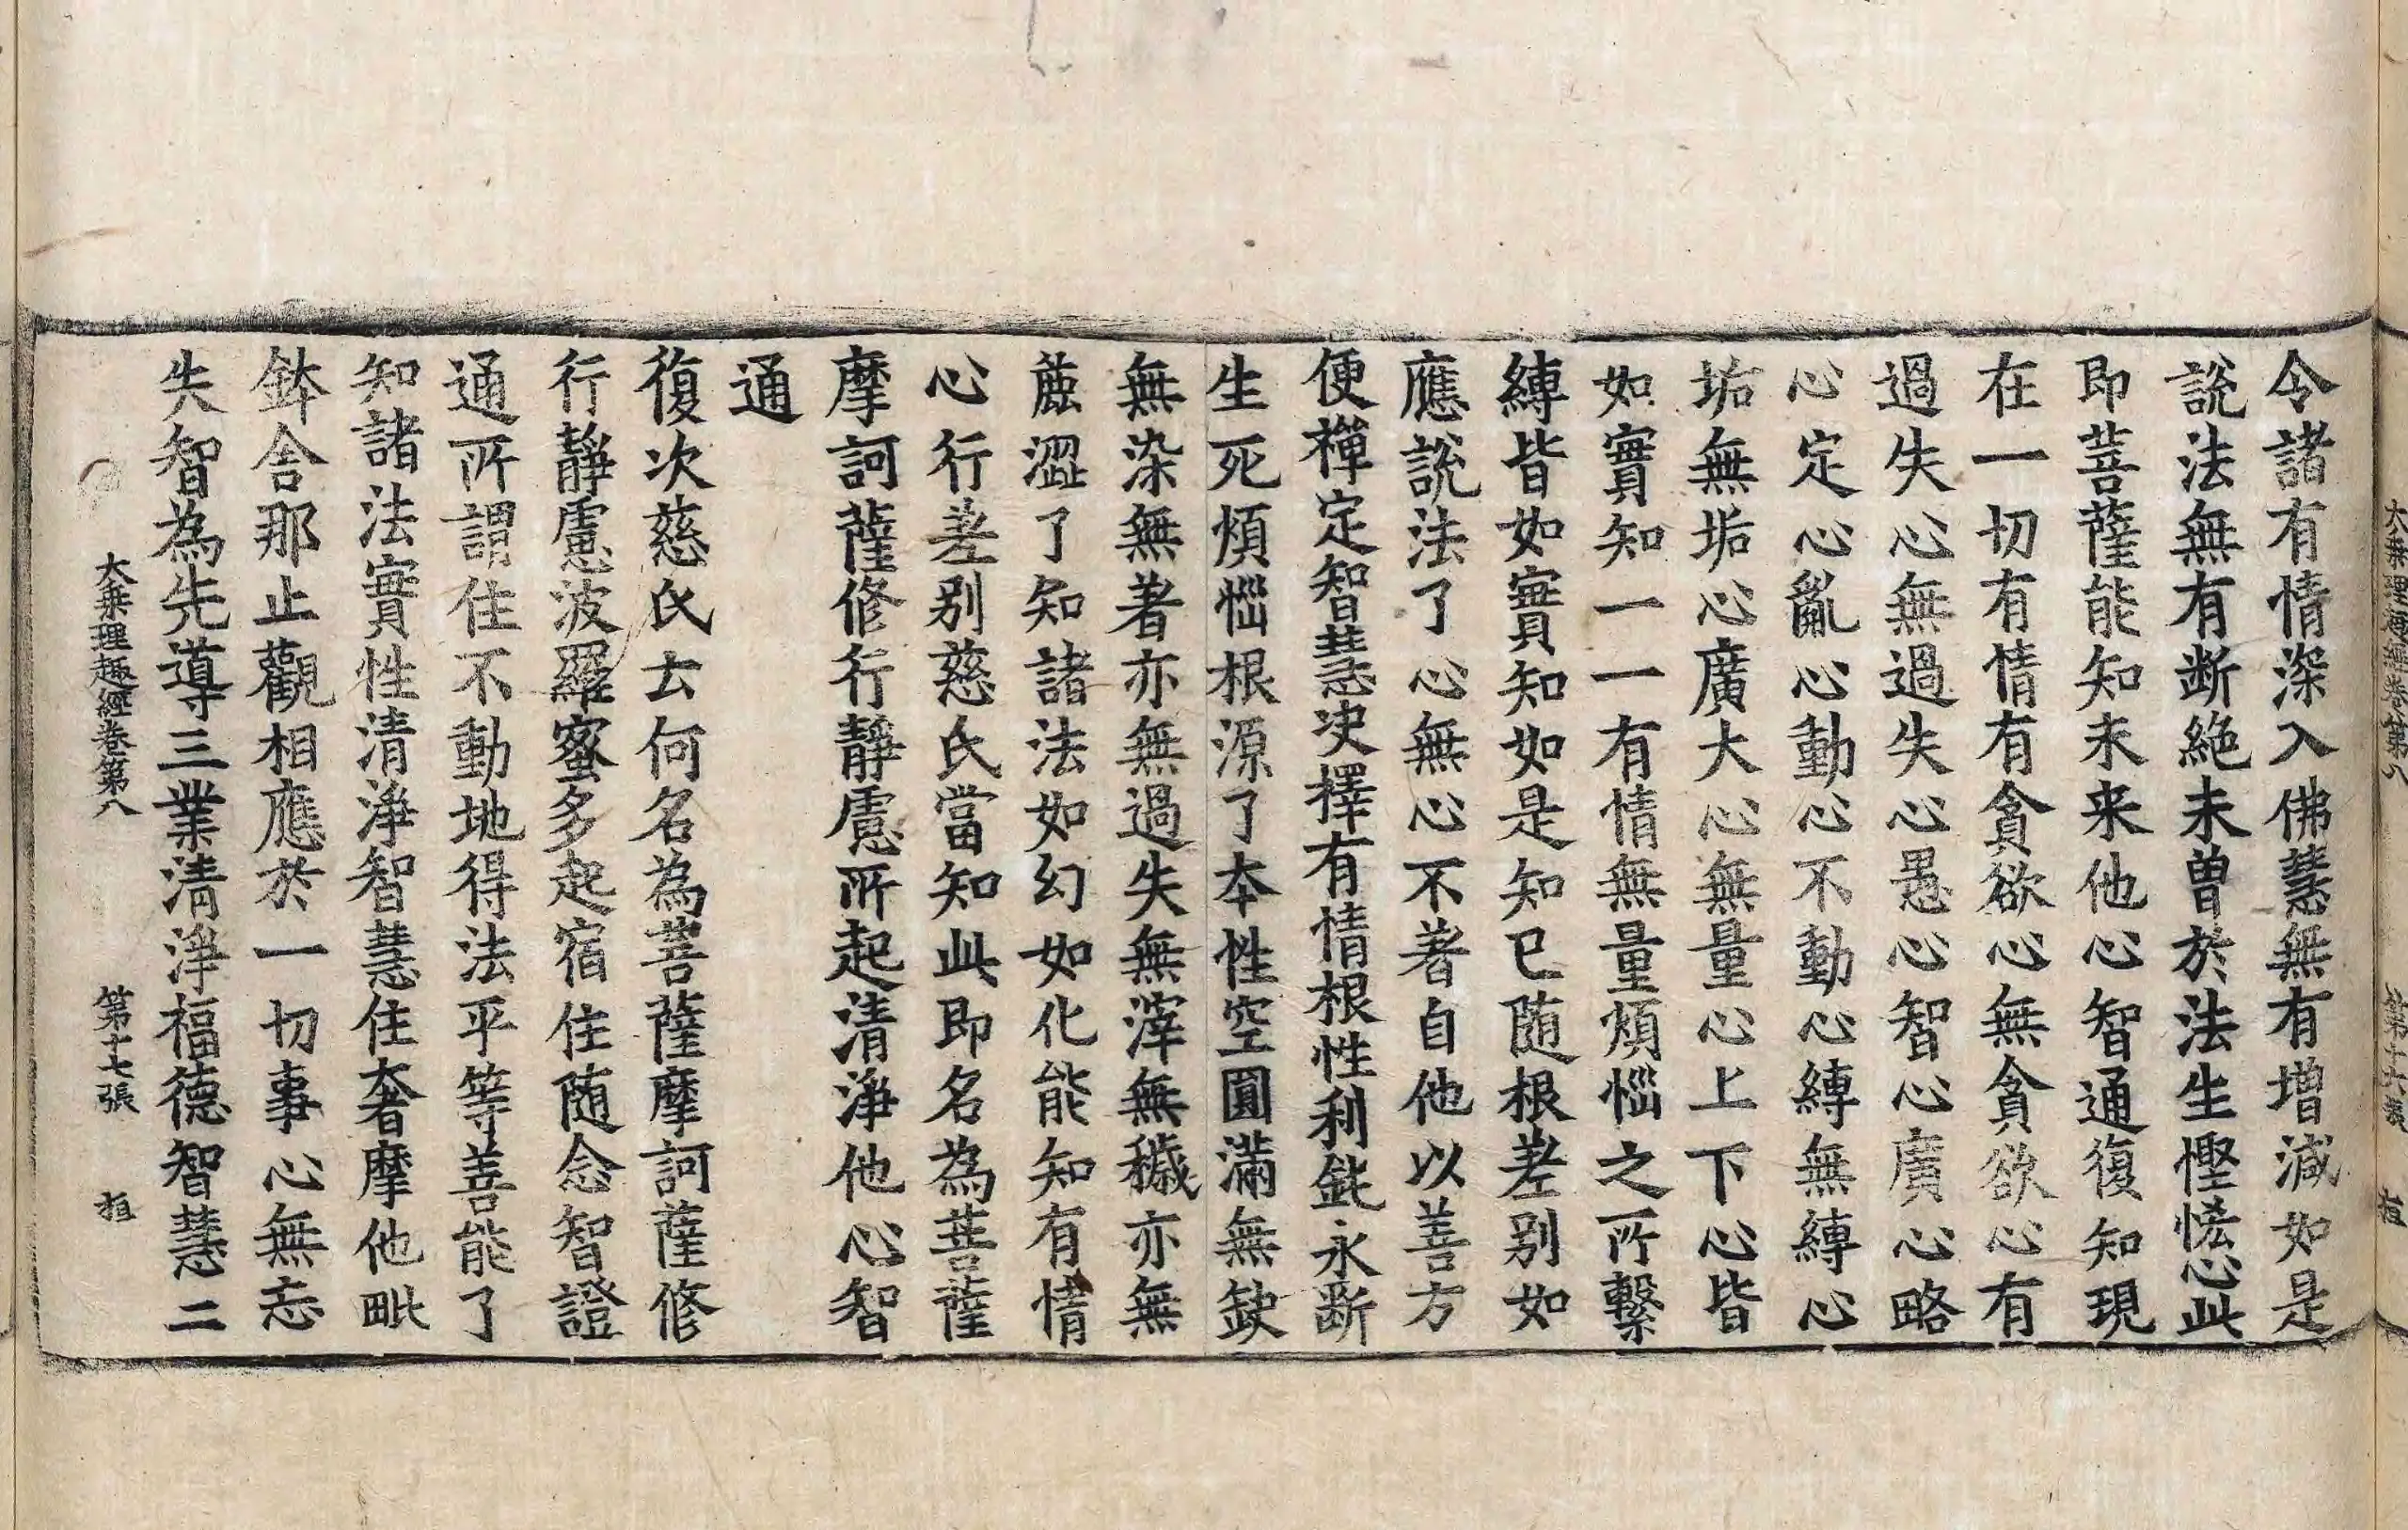 令諸有情深入佛慧無有増減如是
說法無有断絶未曽於法生慳悋心此
即菩薩能知未来他心智通復知現
在一切有情有貪欲心無貪欲心有
過失心無過失心愚心智心廣心略
心定心亂心動心不動心縛無縛心
垢無垢心廣大心無量心上下心皆
如實知一一有情無量煩惱之所繫
縛皆如實知如是知已随根差别如
應說法了心無心不著自他以善方
便禪定智慧决擇有情根性利鈍永斷
生死煩惱根源了夲性空圓滿無缺
無染無著亦無過失無滓無穢亦無
麁澀了知諸法如幻如化能知有情
心行差别慈氏當知此即名為菩薩
摩訶薩修行靜慮所起清淨他心智
通
復次慈氏云何名為菩薩摩訶薩修
行靜慮波羅蜜多起宿住随念智證
通所謂住不動地得法平等善能了
知諸法實性清淨智慧住奢摩他毗
鉢舎那止觀相應於一切事心無忘
失智為先導三業清淨福德智慧二
大乗理趣經卷第八 第十七張